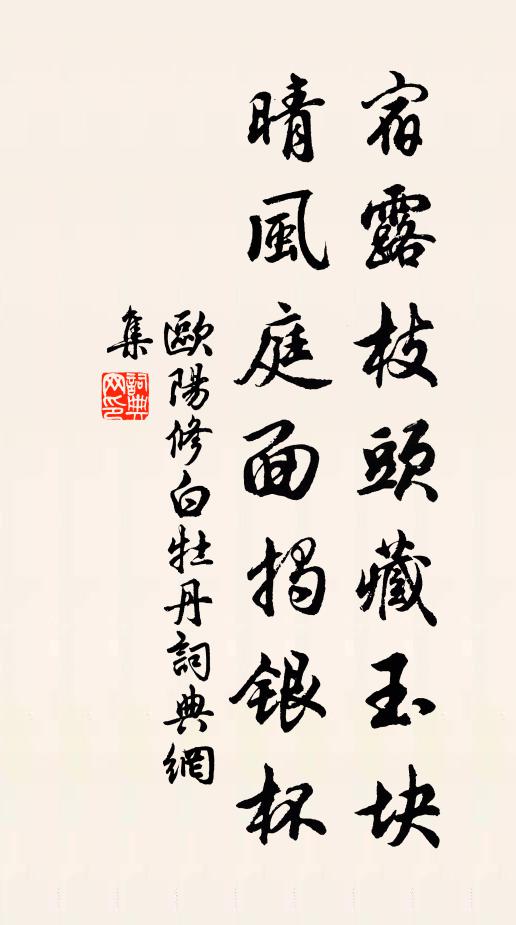 宿露枝頭藏玉块
晴風庭面揭銀杯
歐陽修白牡丹詞典網
集
詞典网印